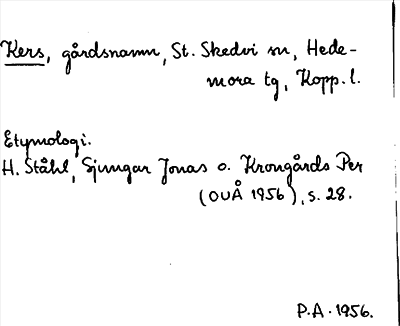 Kers, gårdsnamn, St. Skedvi sn, Hede-
mora tg, Kopp. l.
Etymologi.
H. Ståhl, Sjungar Jonas o. Krongårds Per
(OUÅ 1956), s. 28.
P.A. 1956.